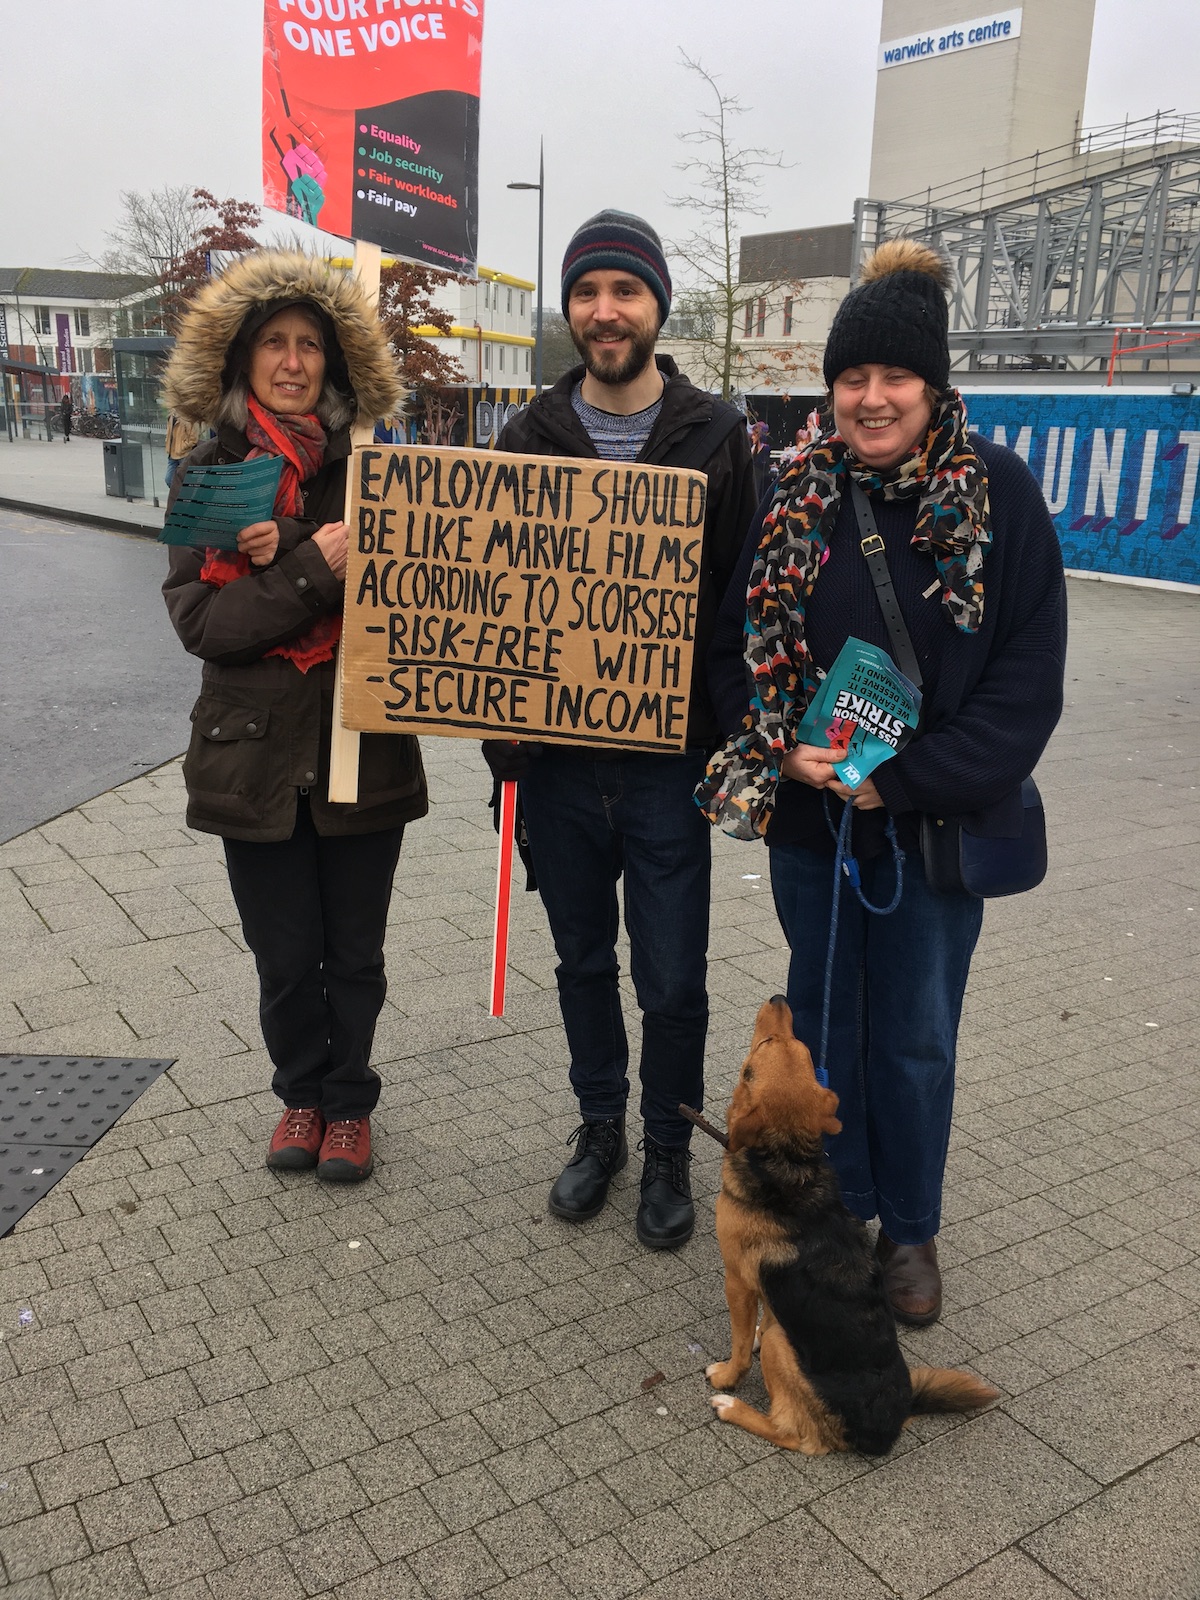 FOUR FIGHTS
ONE VOICE
• Equality
• Job security
• Fair workloads
• Fair pay
warwick arts centre
EMPLOYMENT SHOULD
BE LIKE MARVEL FILMS
ACCORDING TO SCORSESE
-RISK-FREE WITH
-SECURE INCOME
USS PENSION
STRIKE
WE EARNED IT.
WE DESERVE IT.
WE DEMAND IT.
ucu
MUNIT
DIS